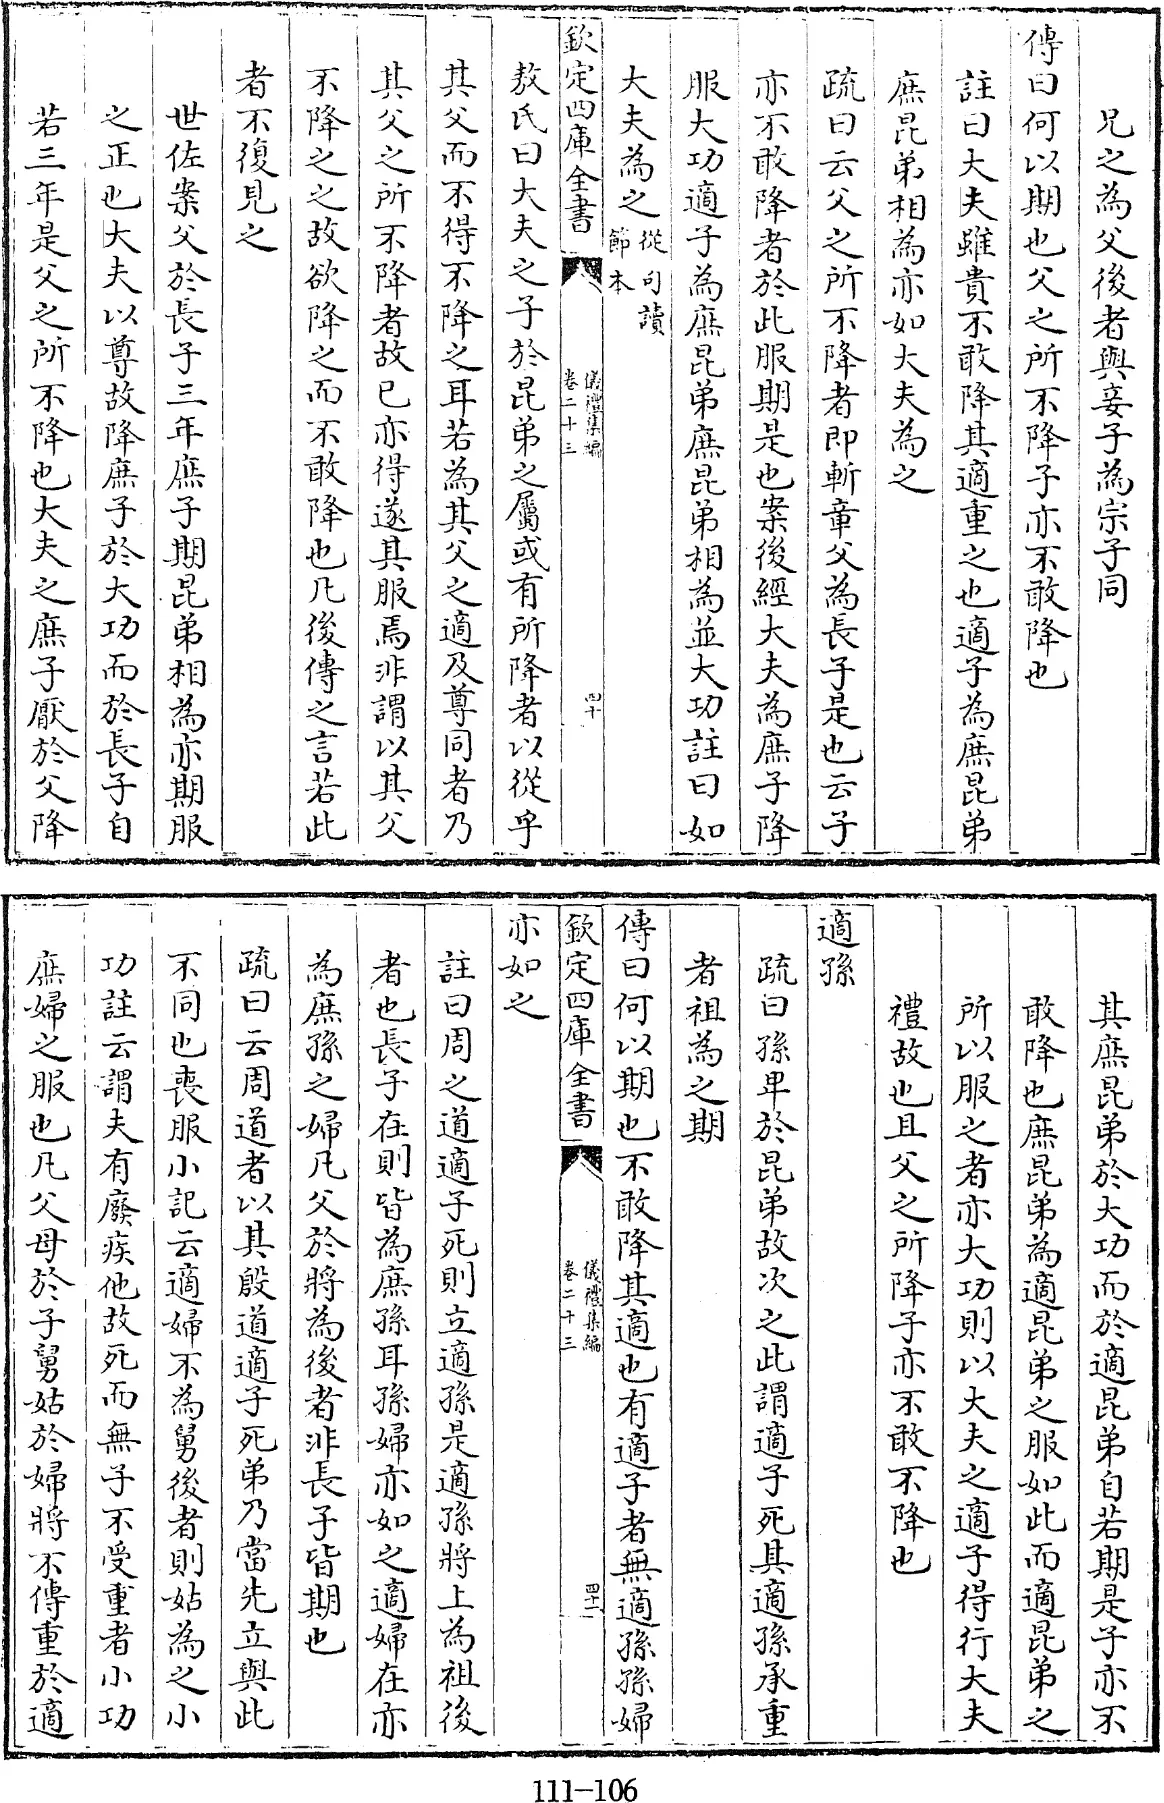 兄之為父後者與妾子為宗子同
傳曰何以期也父之所不降子亦不敢降也
註曰大夫雖貴不敢降其適重之也適子為庶昆弟
庶昆弟相為亦如大夫為之
疏曰云父之所不降者即斬章父為長子是也云子
亦不敢降者於此服期是也案後經大夫為庶子降
服大功適子為庶昆弟庶昆弟相為並大功註曰如
大夫為之從句讀節本
欽定四庫全書
儀禮集編
卷二十三
四十
敖氏曰大夫之子於昆弟之屬或有所降者以從乎
其父而不得不降之耳若為其父之適及尊同者乃
其父之所不降者故已亦得遂其服焉非謂以其父
不降之之故欲降之而不敢降也凡後傳之言若此
者不復見之
世佐案父於長子三年庶子期昆弟相為亦期服
之正也大夫以尊故降庶子於大功而於長子自
若三年是父之所不降也大夫之庶子厭於父降
其庶昆弟於大功而於適昆弟自若期是子亦不
敢降也庶昆弟為適昆弟之服如此而適昆弟之
所以服之者亦大功則以大夫之適子得行大夫
禮故也且父之所降子亦不敢不降也
適孫
疏曰孫卑於昆弟故次之此謂適子死其適孫承重
者祖為之期
傳曰何以期也不敢降其適也有適子者無適孫孫婦
欽定四庫全書
儀禮集編
卷二十三
四十一
亦如之
註曰周之道適子死則立適孫是適孫將上為祖後
者也長子在則皆為庶孫耳孫婦亦如之適婦在亦
為庶孫之婦凡父於將為後者非長子皆期也
疏曰云周道者以其殷道適子死弟乃當先立與此
不同也喪服小記云適婦不為舅後者則姑為之小
功註云謂夫有廢疾他故死而無子不受重者小功
庶婦之服也凡父母於子舅姑於婦將不傳重於適
111-106